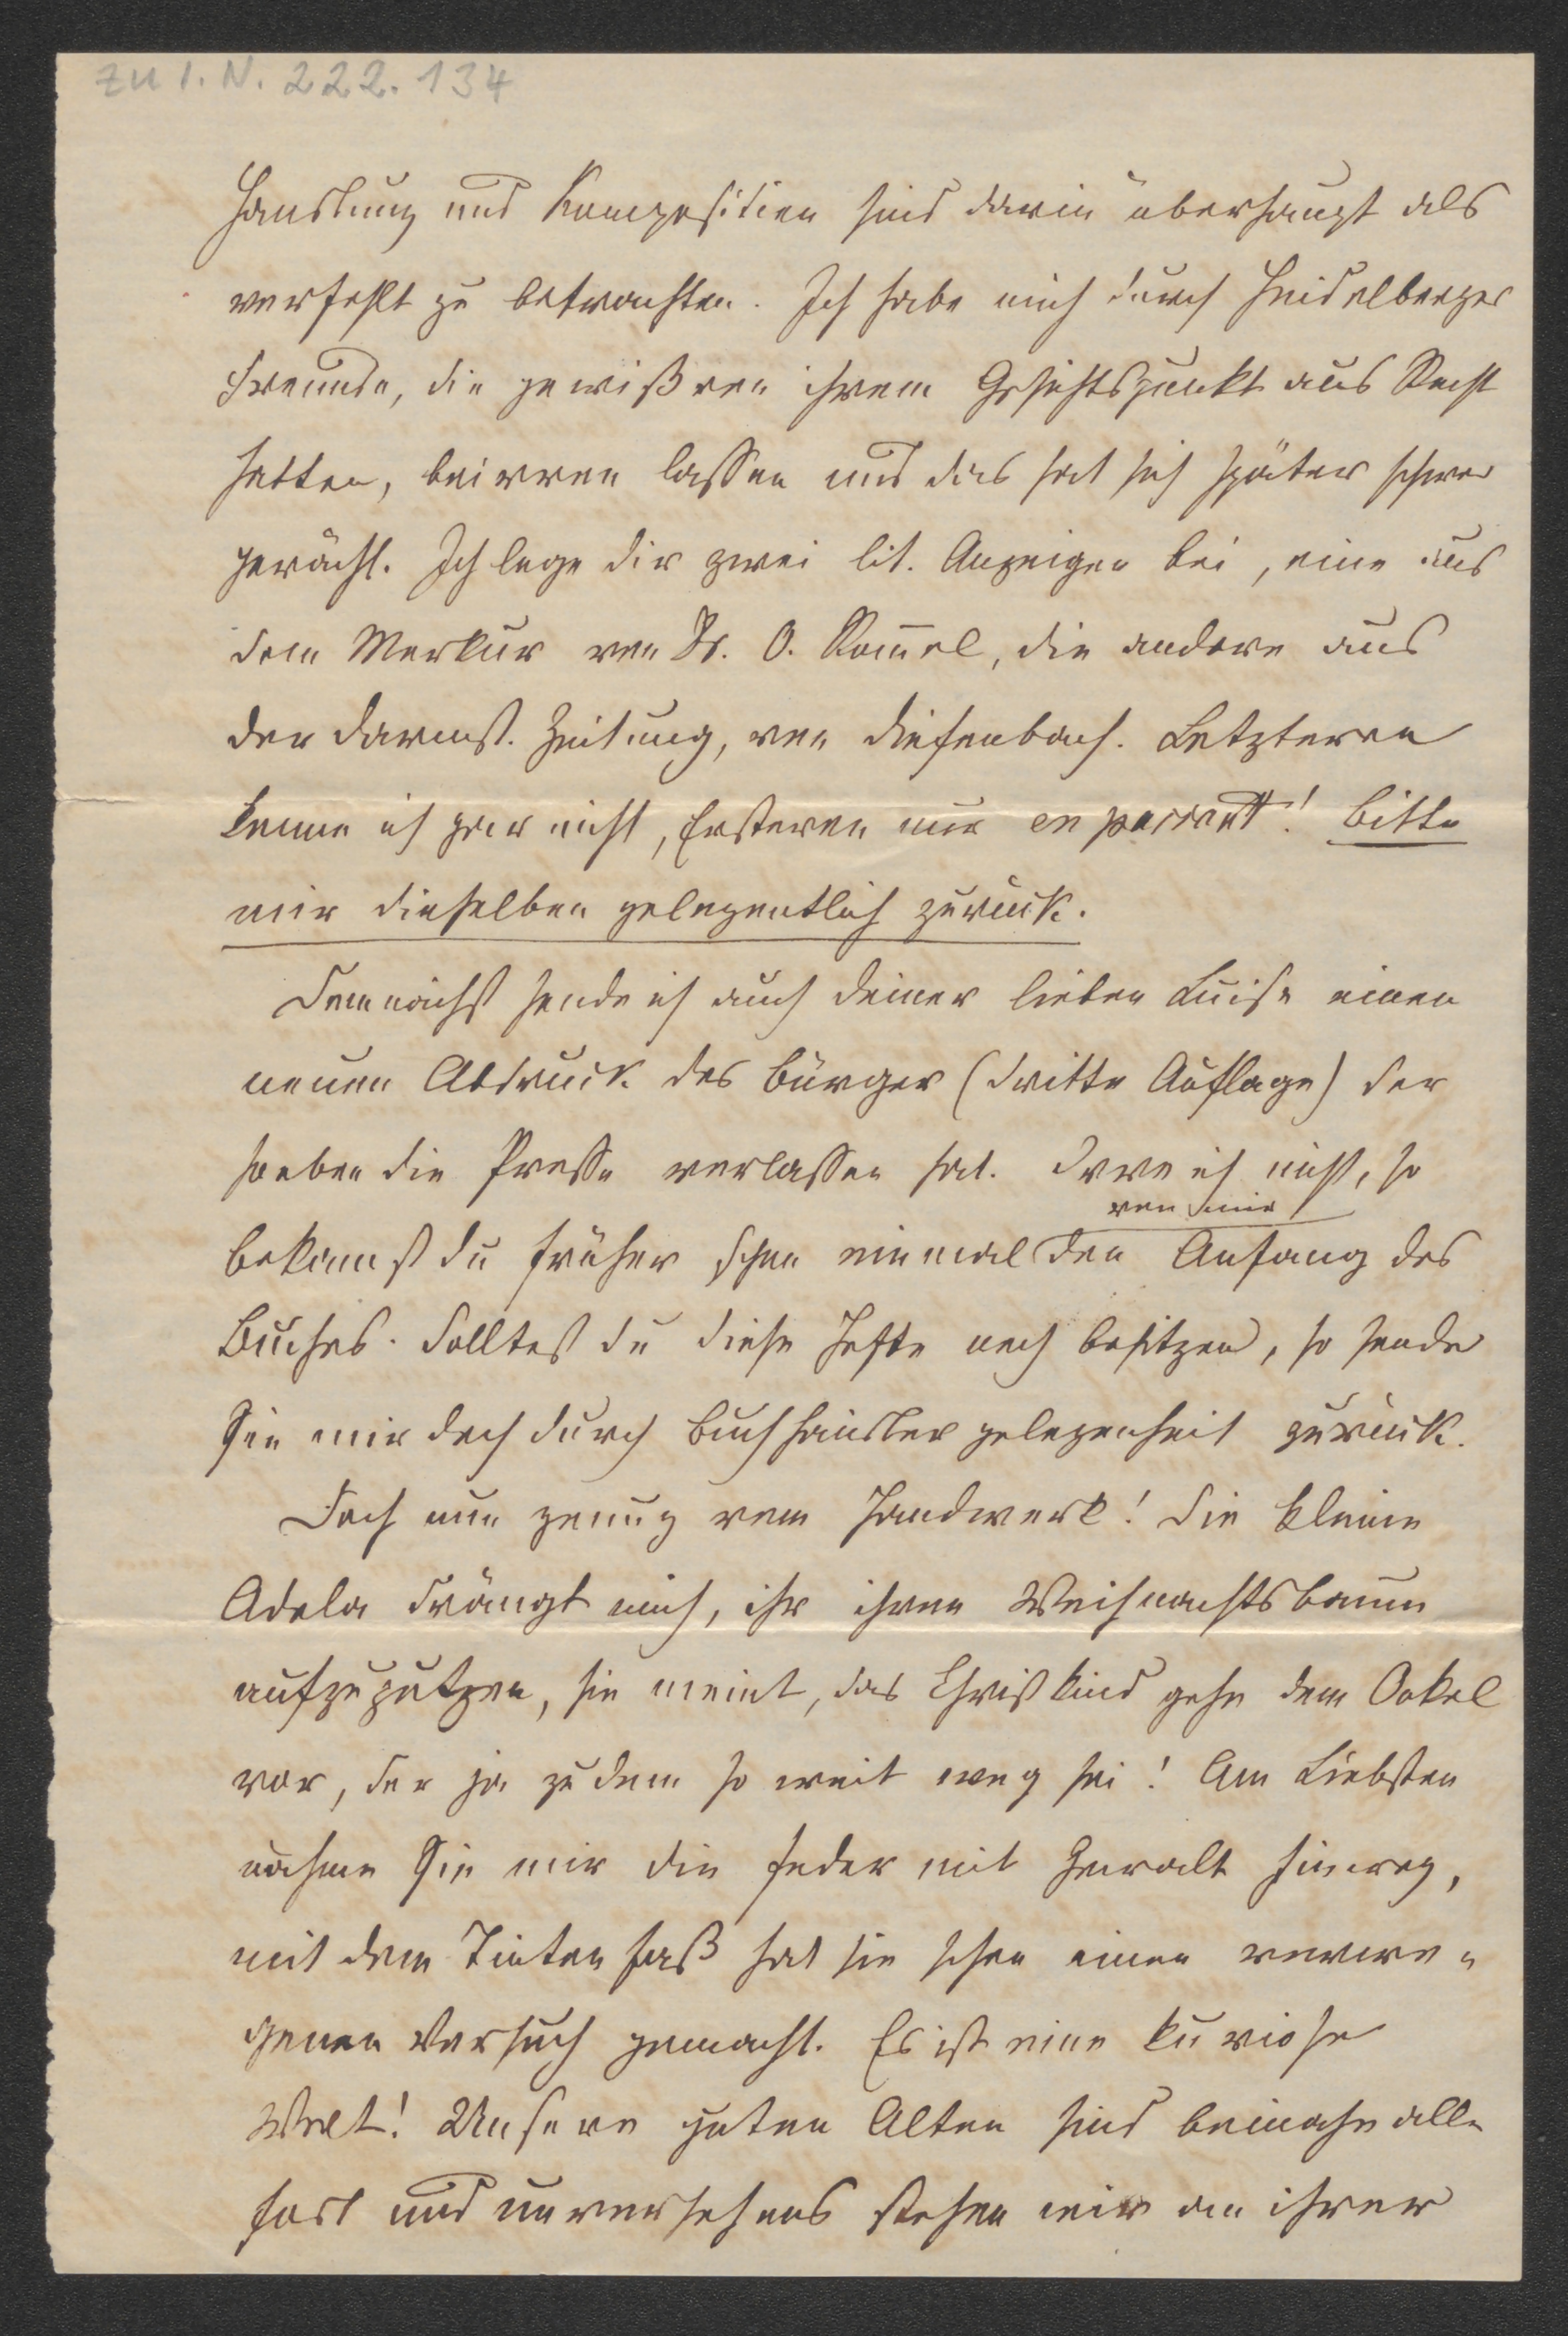 zu I. N. 222.134
Handlung und Komposition sind darin überhaupt als
verfehlt zu betrachten. Ich habe mich durch Heidelberger
Freunde, die gewiß von ihrem Gesichtspunkt aus Recht
hatten, beirren lassen und das hat sich später schwer
gerächt. Ich lege dir zwei lit. Anzeigen bei, eine aus
dem Merkur von Dr. O. Rom̅el, die andere aus
der Darmst. Zeitung, von Diefenbach. Letzteren
kenne ich gar nicht, Ersteren nur en passant! Bitte
mir dieselben gelegentlich zurück.
Demnächst sende ich auch deiner lieben Luise einen
neuen Abdruck des Bürger (dritte Auflage) der
soeben die Presse verlassen hat. Irre ich nicht, so
von mir
bekamst du früher schon einmal den Anfang des
Buches. Solltest du diese Hefte noch besitzen, so sende
Sie mir doch durch Buchhändlergelegenheit zurück.
Doch nun genug vom Handwerk! Die kleine
Adela drängt mich, ihr ihren Weihnachtsbaum
aufzuputzen, sie meint, das Christkind gehe dem Onkel
vor, der ja zudem so weit weg sei! Am Liebsten
nähme Sie mir die Feder mit Gewalt hinweg,
mit dem Tintenfaß hat sie schon einen verwe-
genen Versuch gemacht. Es ist eine kuriose
Welt! Unsere guten Alten sind beinahe alle
fort und unversehens stehen wir an ihrer